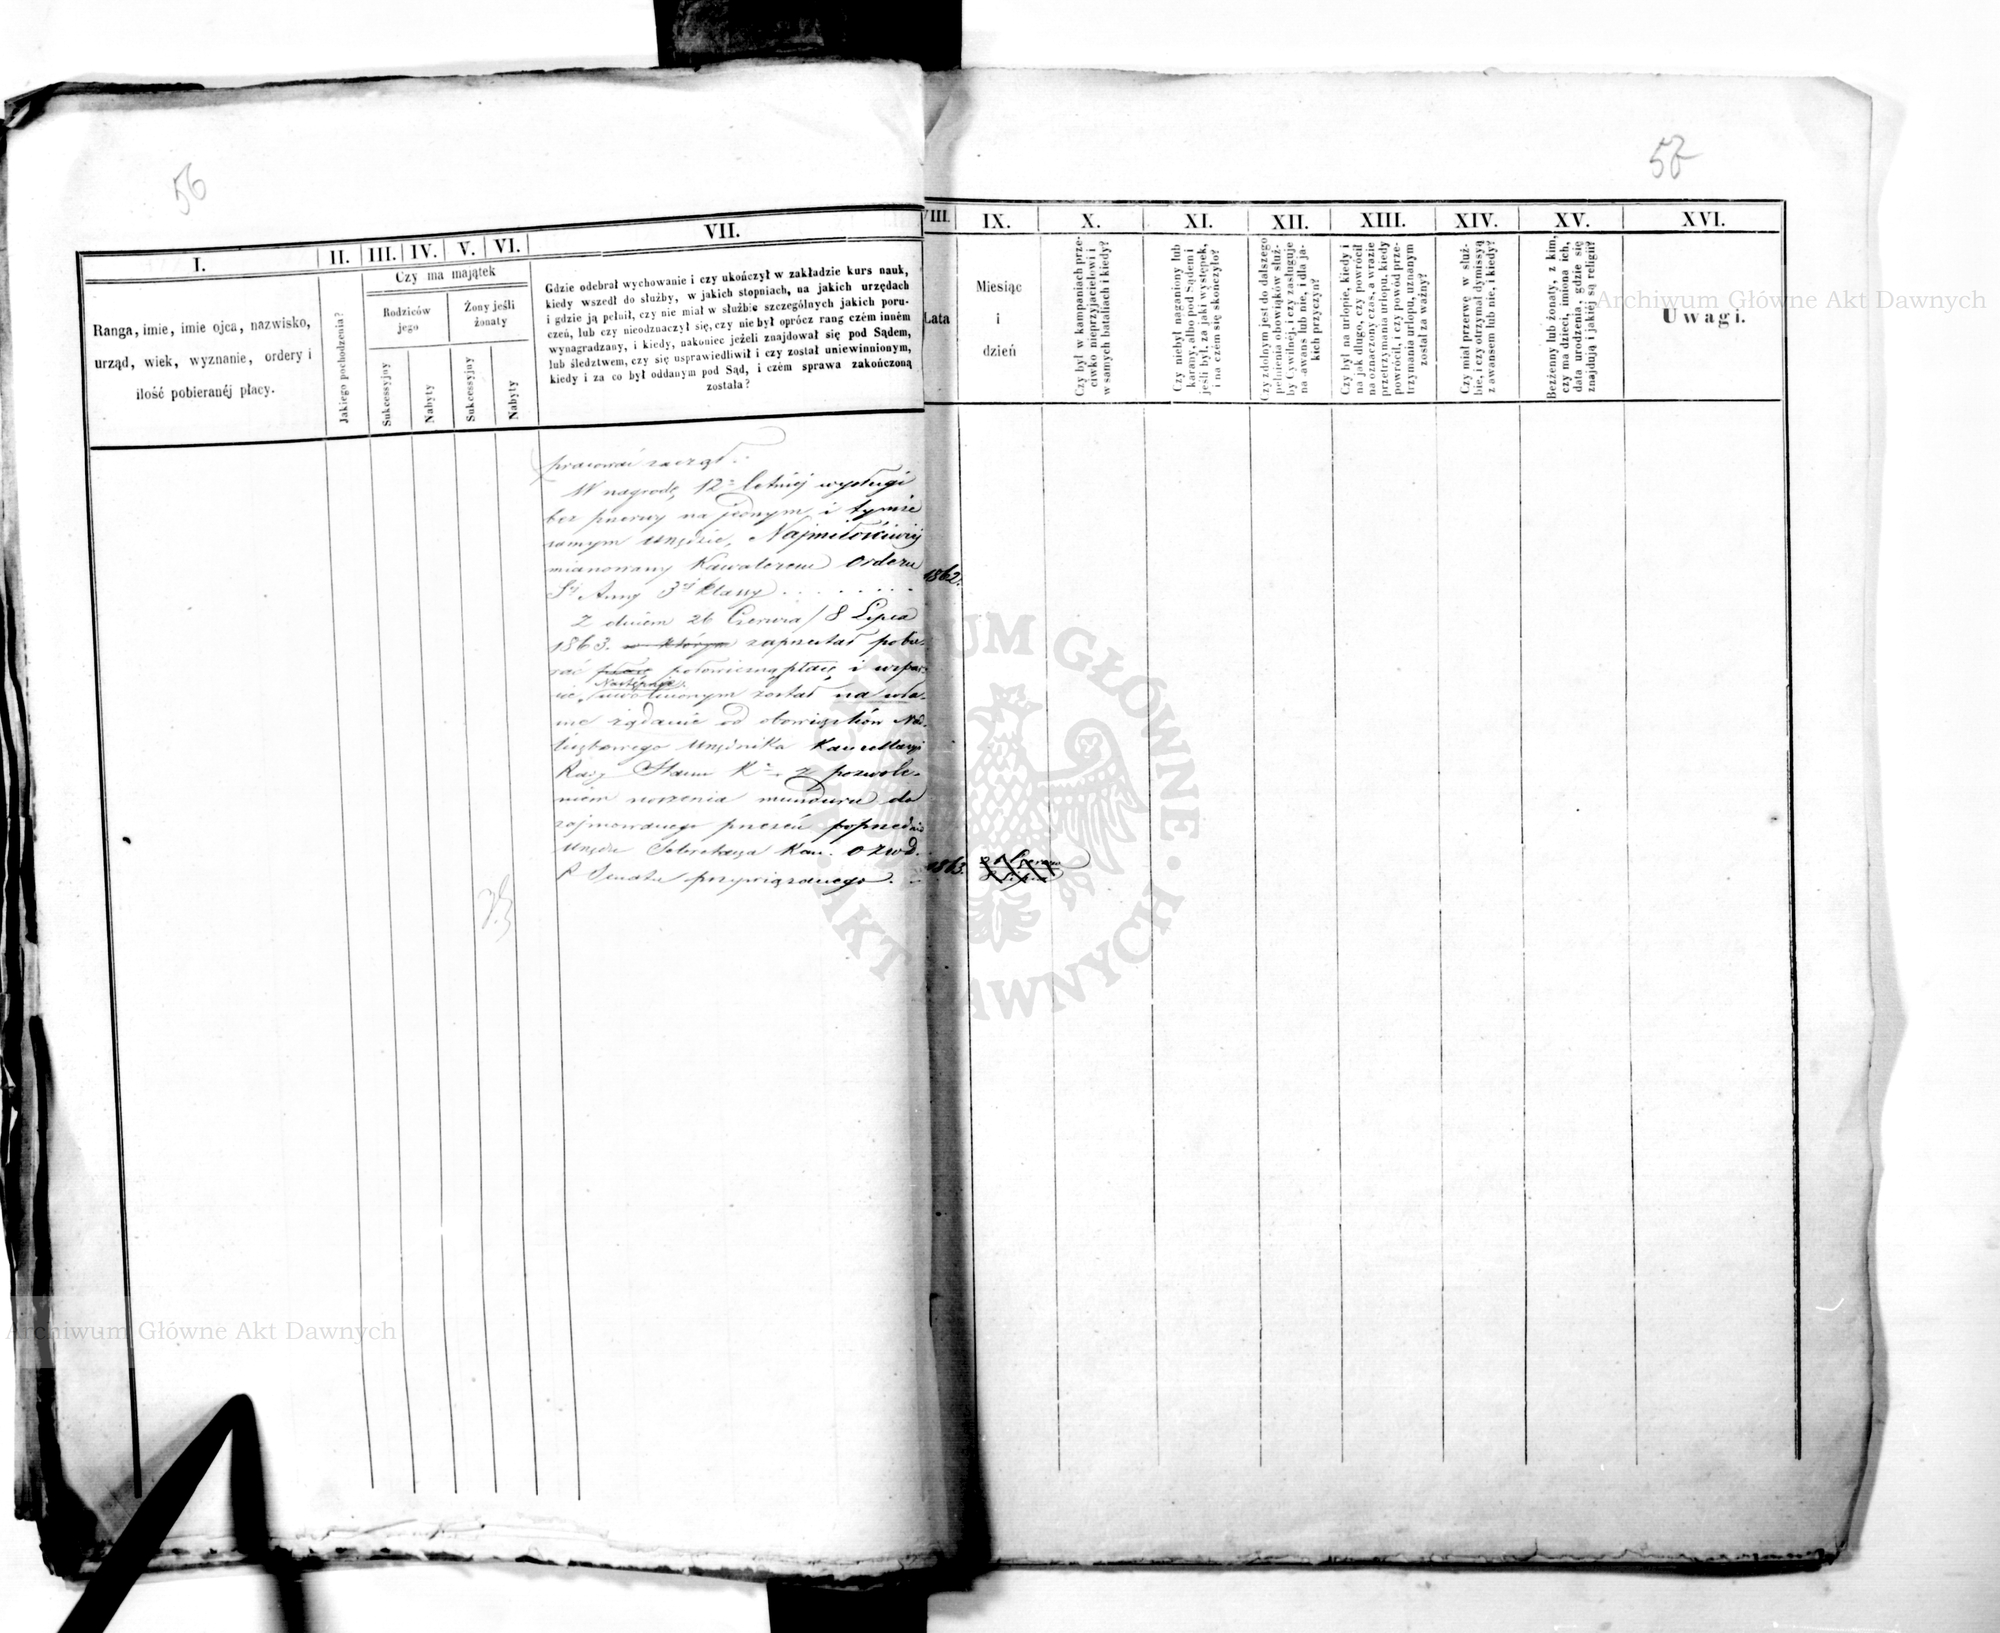 56
I.
II.
III.
IV.
V.
VI.
VII.
Ranga, imie, imie ojca, nazwisko,
urząd, wiek, wyznanie, ordery i
ilość pobieranéj płacy.
Jakiego pochodzenia?
Czy ma majątek
Rodziców
jego
Żony jeśli
żonaty
Sukcessyjny
Nabyty
Sukcessyjny
Nabyty
Gdzie odebrał wychowanie i czy ukończył w zakładzie kurs nauk,
kiedy wszedł do służby, w jakich stopniach, na jakich urzędach
i gdzie ją pełnił, czy nie miał w służbie szczególnych jakich poru-
czeń, lub czy nieodznaczył się, czy nie był oprócz rang czém inném
wynagradzany, i kiedy, nakoniec jeżeli znajdował się pod Sądem,
lub śledztwem, czy się usprawiedliwił i czy został uniewinnionym,
kiedy i za co był oddanym pod Sąd, i czém sprawa zakończoną
została?
pracować zaczął.
W nagrodę 12 letniéj wysługi
bez przerwy na jednym i tymże
samym Urzędzie, Najmiłościwiéj
mianowany Kawalerem Orderu
Sj Anny 3éj klassy
Z dniem 26 Czerwca / 8 Lipca
1863. w którym zaprzestał pobie-
rać płacę połowiczną płacę i wspar-
cie, Następnie uwolnionym został na wła-
sne żądanie od obowiązków Nad-
liczbowego Urzędnika Kancellaryi
Rady Stanu K z pozwole-
niem noszenia munduru do
zajmowanego przezeń poprzednio
Urzędu Sekretarza Kan. O Zwd.
P Senatu przywiązanego.
57
VIII.
IX.
X.
XI.
XII.
XIII.
XIV.
XV.
XVI.
Lata
Miesiąc
i
dzień
Czy był w kampaniach prze-
ciwko nieprzyjacielowi i
w samych batailiach i kiedy?
Czy niebył naganiony lub
karany, albo pod Sądem i
jeśli był, za jaki występek,
i na czém się skończyło?
Czy zdolnym jest do dalszego
pełnienia obowiąków służ-
by Cywilnéj, i czy zasługuje
na awans lub nie, i dla ja-
kich przyczyn?
Czy był na urlopie, kiedy i
na jak długo, czy powrócił
na oznaczony czas, a w razie
przetrzymania urlopu, kiedy
powrócił, i czy powód prze-
trzymania urlopu, uznanym
został za ważny?
Czy miał przerwę w służ-
bie, i czy otrzymał dymissyą
z awansem lub nie, i kiedy?
Bezżenny lub żonaty, z kim,
czy ma dzieci, imiona ich,
data urodzenia, gdzie się
znajdują i jakiéj są religii?
Uwagi.
1862.
1863.
Archiwum Główne Akt Dawnych
Archiwum Główne Akt Dawnych